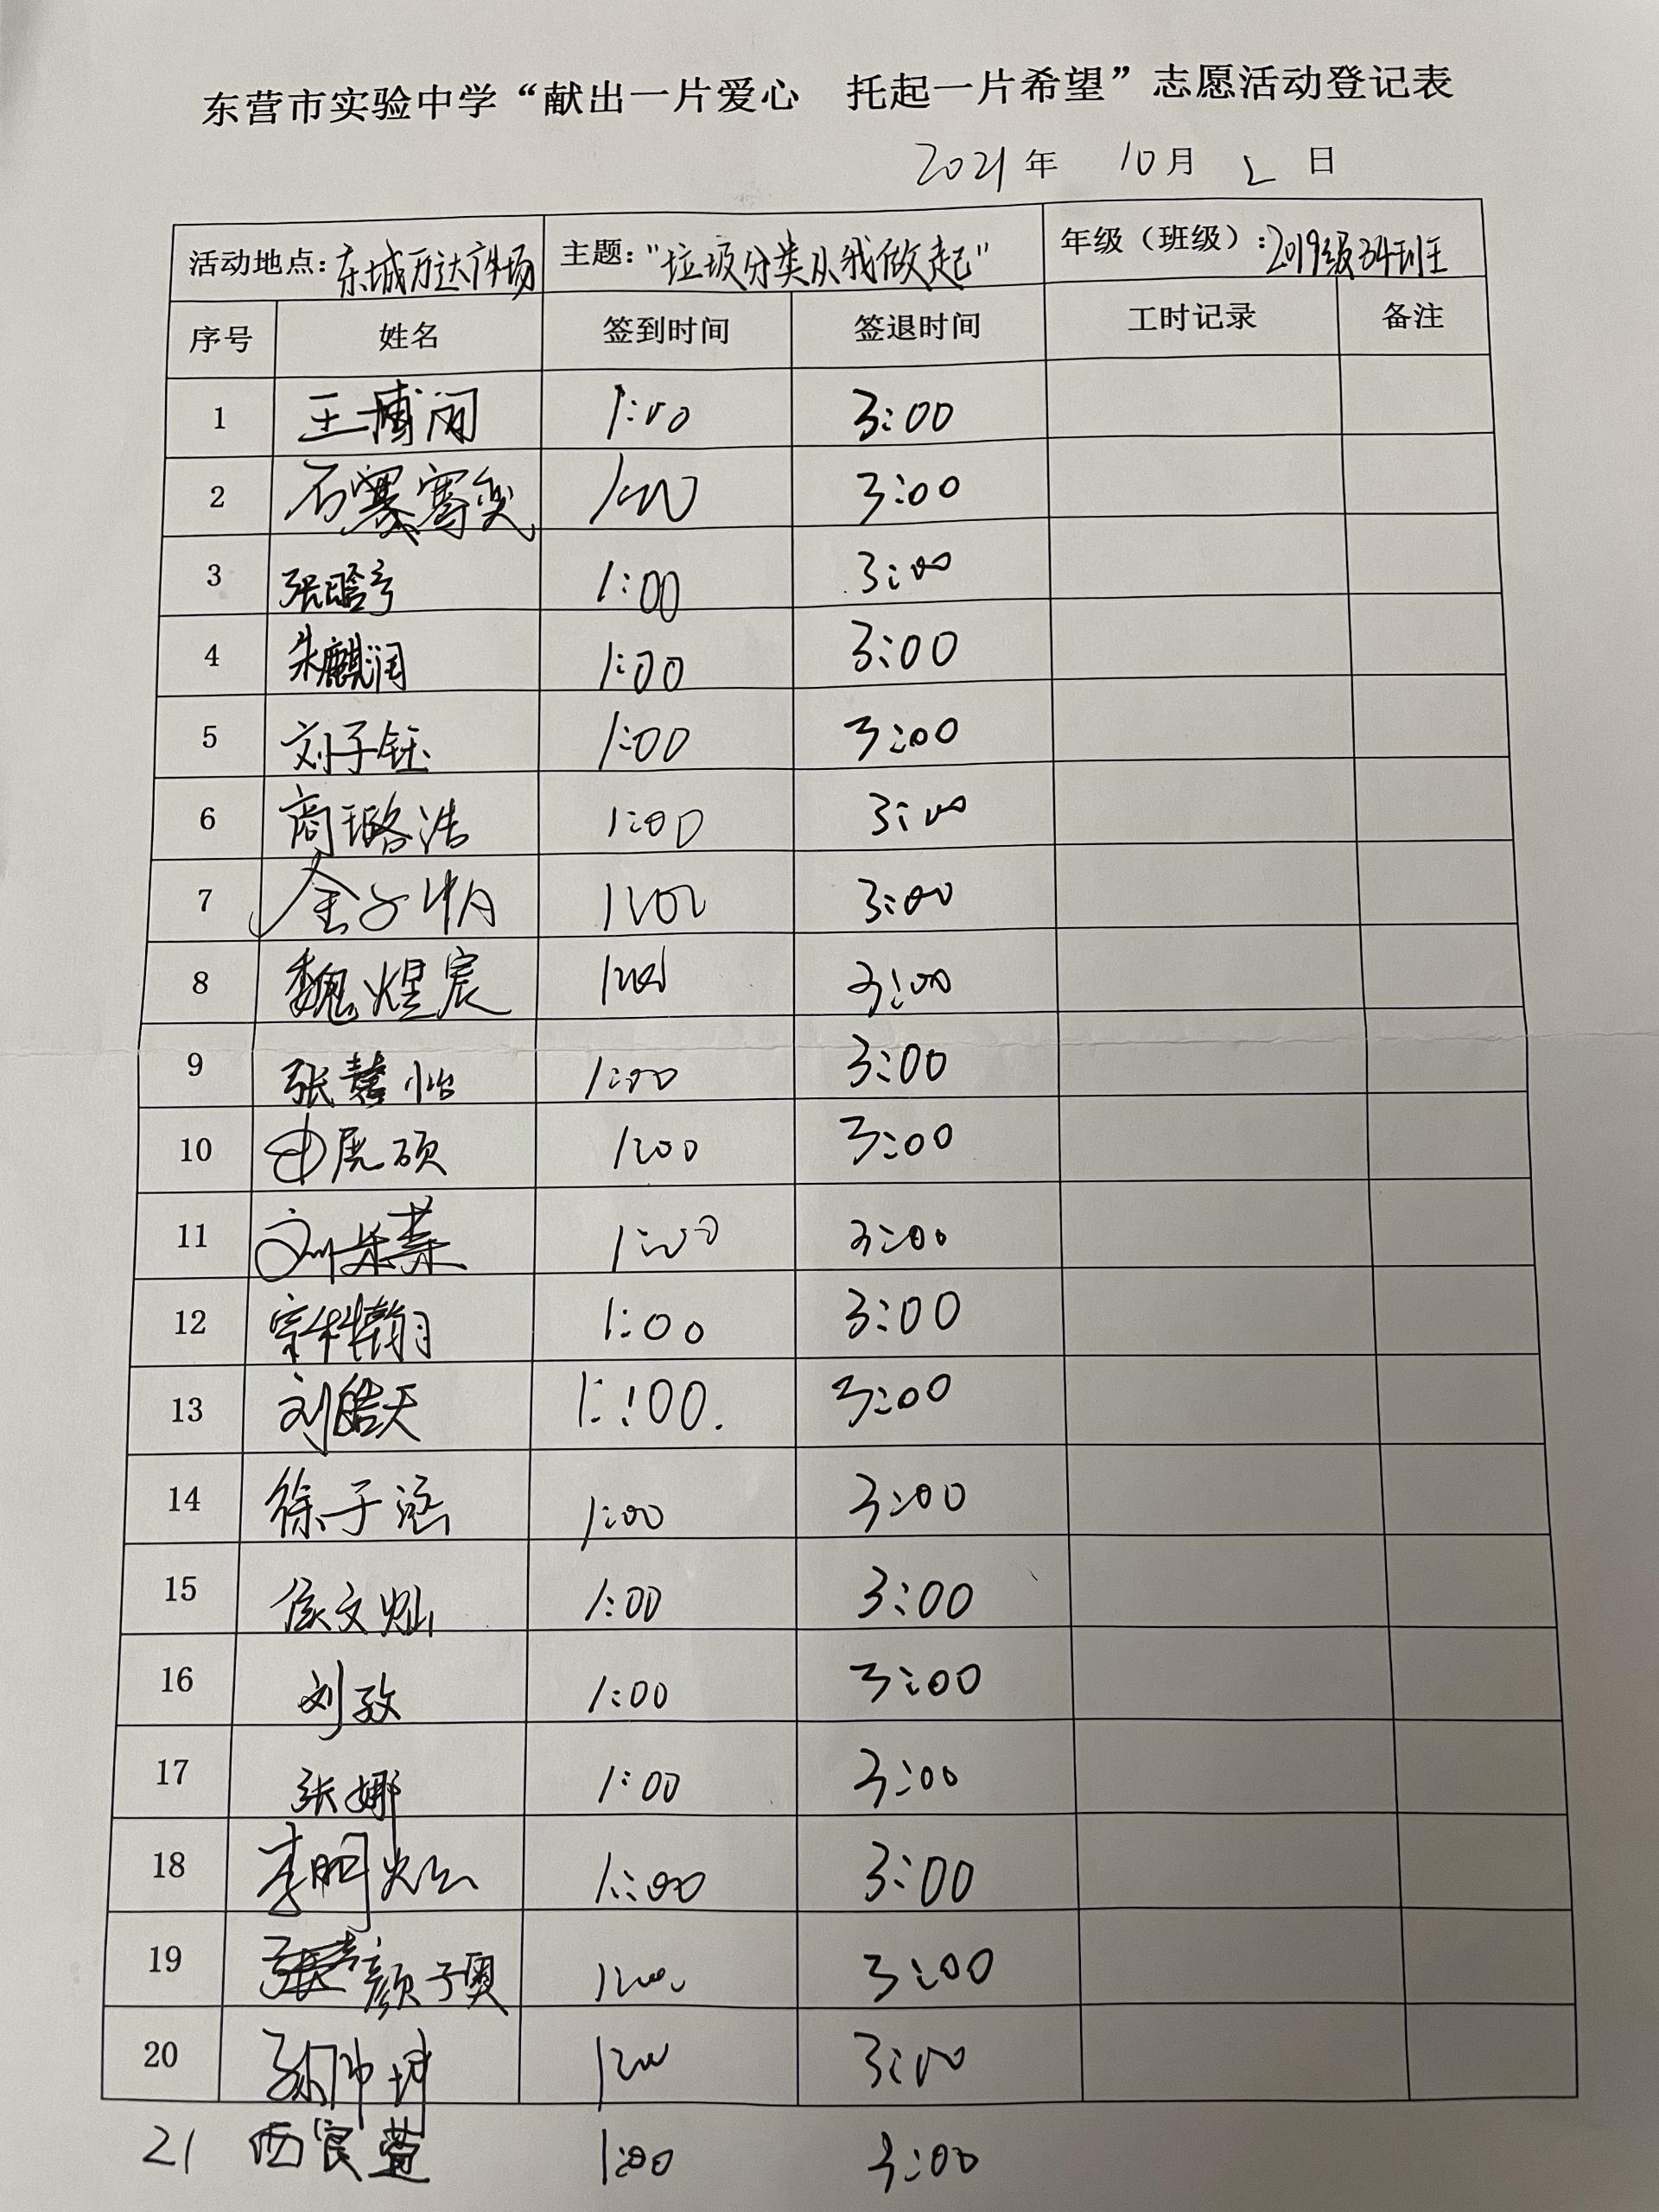 东营市实验中学“献出一片爱心 托起一片希望”志愿活动登记表
2021年 10月 2 日
活动地点：东城万达广场 主题：“垃圾分类从我做起” 年级（班级）：2019级34班
序号 姓名 签到时间 签退时间 工时记录 备注
1 王博闻 1:00 3:00
2 石 1:00 3:00
3 张晗 1:00 3:00
4 朱麒润 1:00 3:00
5 刘子钰 1:00 3:00
6 商璐浩 1:00 3:00
7 金子 1:00 3:00
8 魏煜宸 1:00 3:00
9 张馨怡 1:00 3:00
10 硕 1:00 3:00
11 刘 1:00 3:00
12 宗 1:00 3:00
13 刘皓天 1::00. 3:00
14 徐子涵 1:00 3:00
15 侯文灿 1:00 3:00
16 刘孜 1:00 3:00
17 张娜 1:00 3:00
18 李明 1:00 3:00
19 颜子奥 1:00 3:00
20 孙帅坤 1:00 3:00
21 西宸萱 1:00 3:00